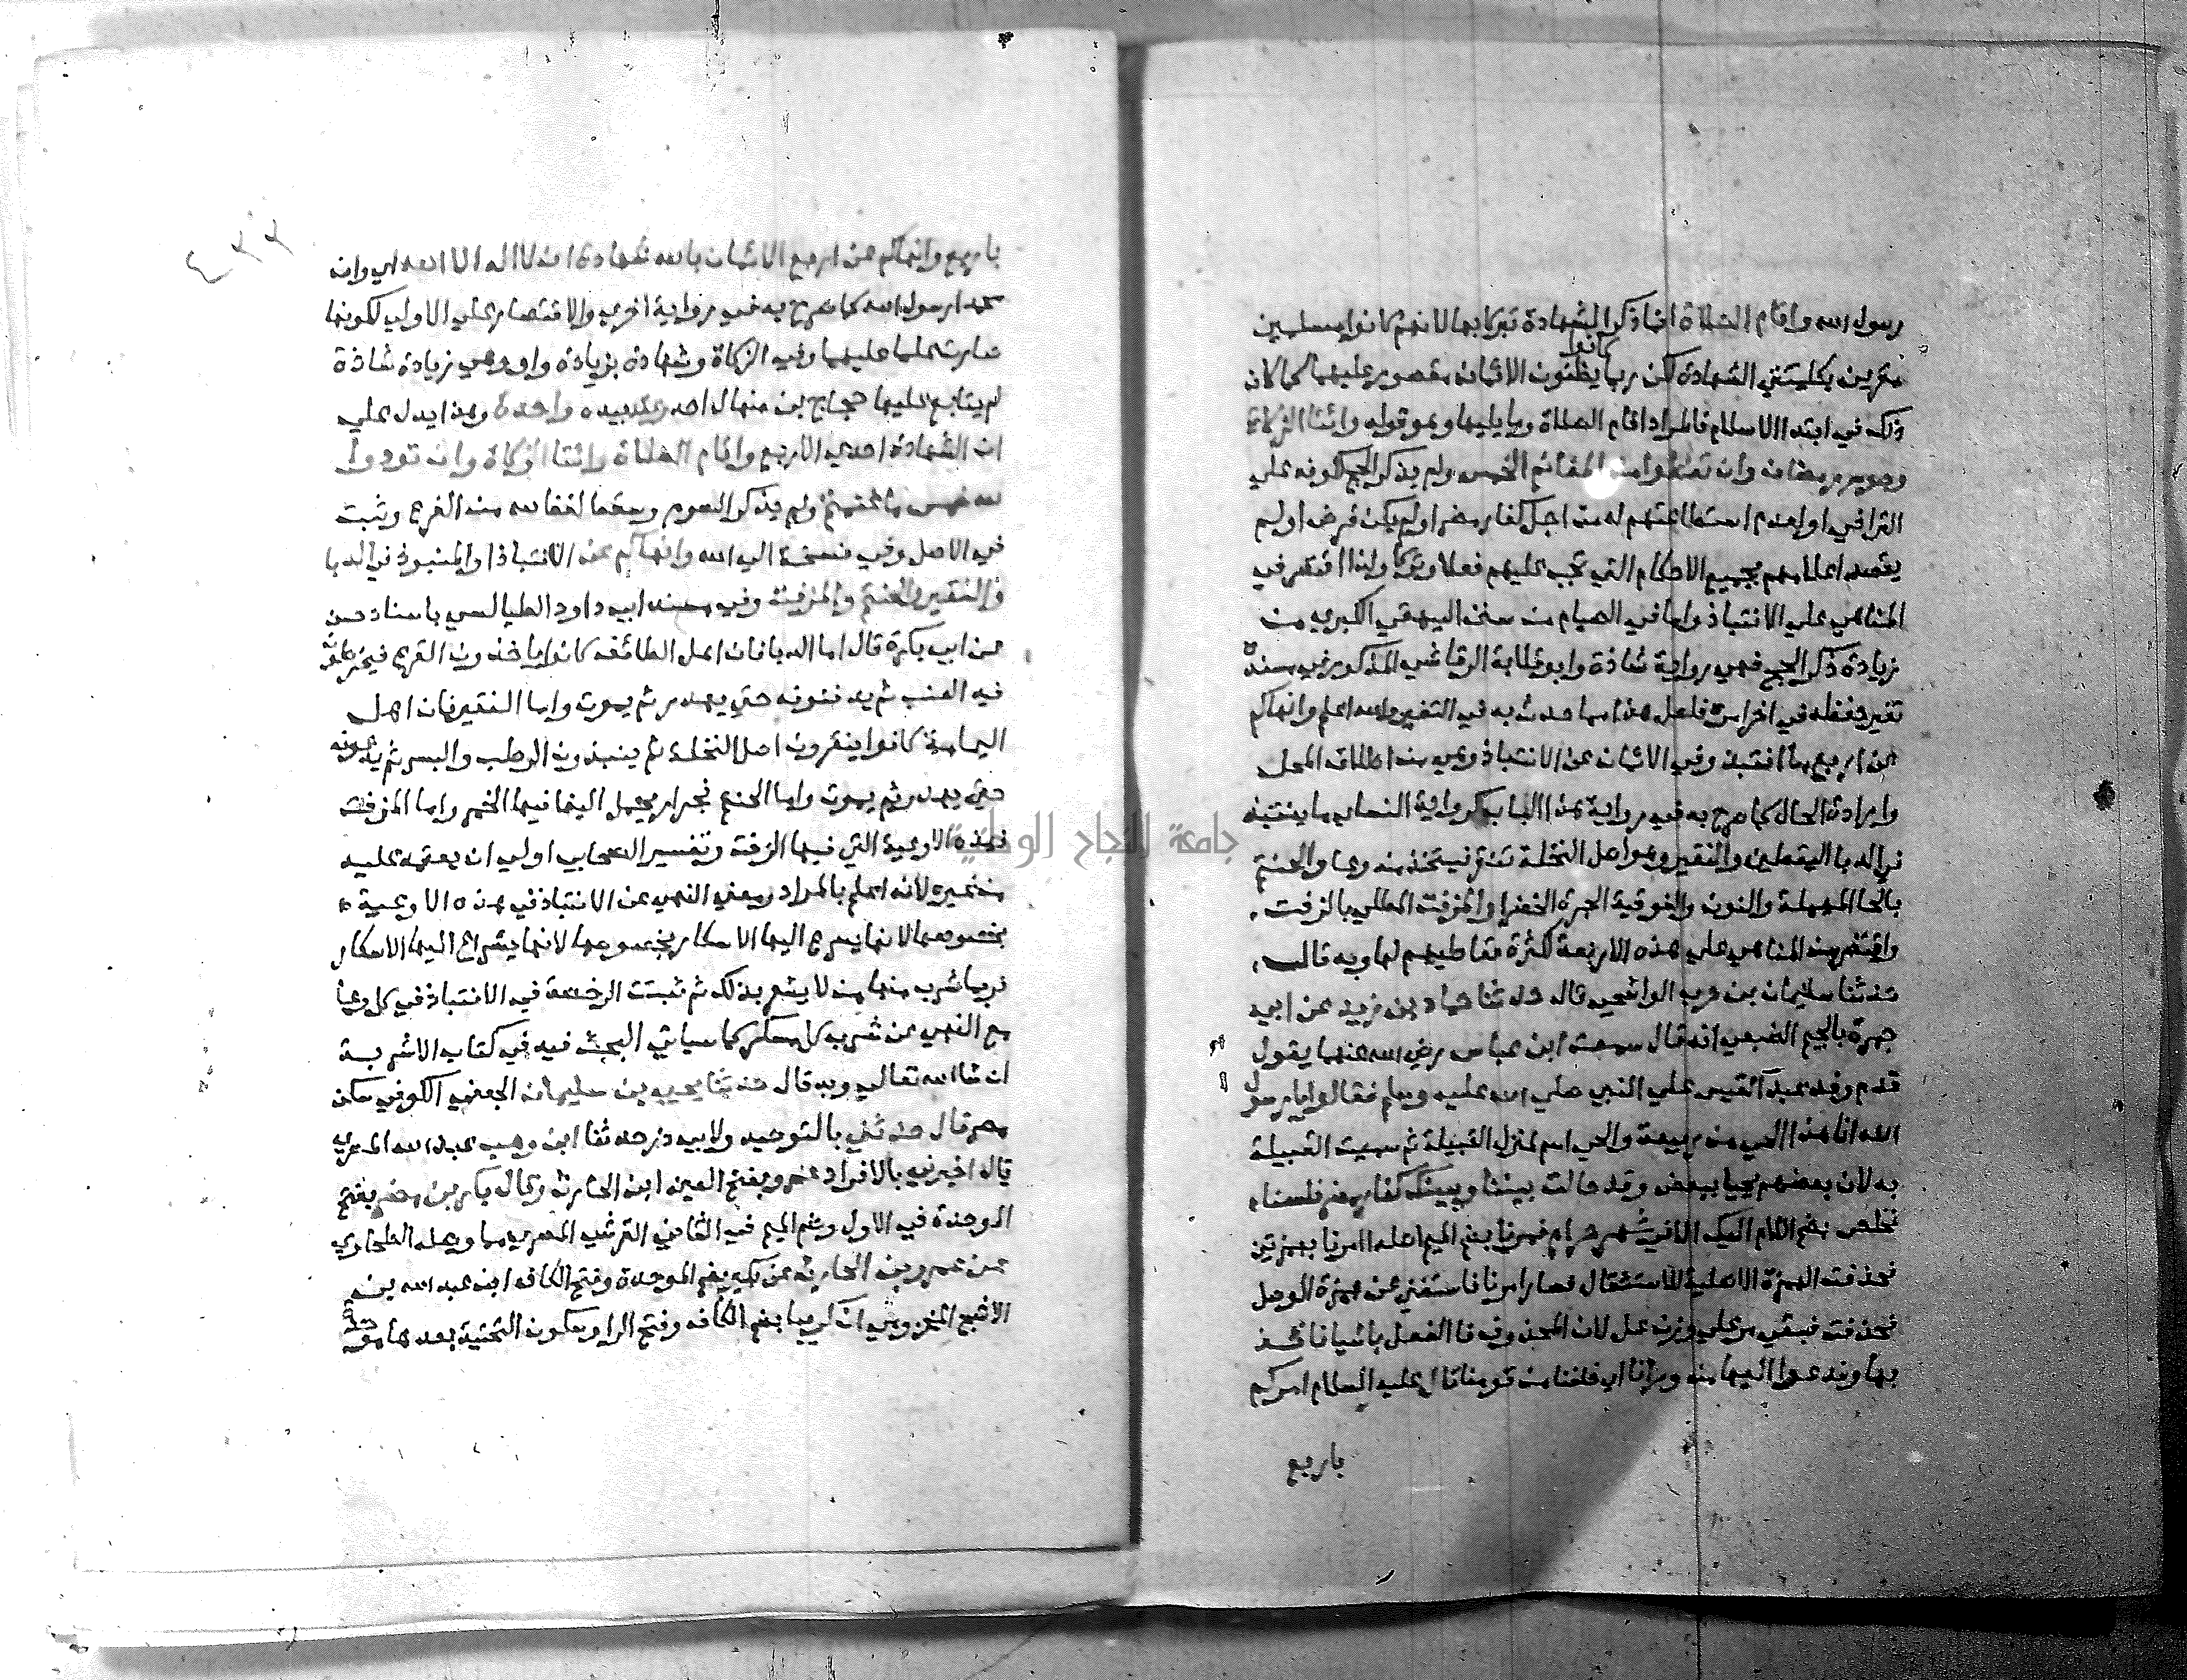 رسول الله واقام الصلاة انما ذكر الشهادة تبركا بها لانهم كانوا مسلمين
كانوا
مقرين بكلمتي الشهادة لكن ربما يظنون الايمان مقصور عليهما كما كان
ذلك في ابتدا الاسلام فالمراد اقام الصلاة وما يليها وهو قوله وايتا الزكاة
وصوم رمضان وان تعطوا من المغانم الخمس ولم يذكر الحج لكونه علي
التراخي او لعدم استطاعتهم له من اجل كفار مضر او لم يكن فرض او لم
يقصد اعلامهم بجميع الاحكام التي تجب عليهم فعلا وتركا ولذا اقتصر في
المناهي علي الانتباذ واما في الصيام من سنن البيهقي الكبري من
زيادة ذكر الحج فهي رواية شاذة وابو قلابة الرقاشي المذكور في سنده
تغير حفظه في اخر امره فلعل هذا مما حدث به في التغير والله اعلم وانهاكم
عن اربع ما انتبذ وفي الايمان عن الانتباذ وهي من اطلاق المحل
وارادة الحال كما صرح به في رواية هذا الباب كرواية النساي ما ينتبذ
في الدبا اليقطين والنقير وهو اصل النخلة تنقر فيتخذ منه وعا والحنتم
بالحا المهملة والنون والفوقية الجرة الخضرا والمزفت المطلي بالزفت
واقتصر من المناهي علي هذه الاربعة لكثرة تعاطيهم لها وبه قال
حدثنا سليمان بن حرب الواشحي قال حدثنا حماد بن زيد عن ابي
جمرة بالجيم الضبعي انه قال سمعت ابن عباس رضي الله عنهما يقول
قدم وفد عبد القيس علي النبي صلي الله عليه وسلم فقالوا يا رسول
الله انا هذا الحي من ربيعة والحي اسم لمنزل القبيلة ثم سميت القبيلة
به لان بعضهم يحيا ببعض وقد حالت بيننا وبينك كفار مضر فلسنا
نخلص بضم اللام اليك الا في شهر حرام فمرنا بضم الميم اصله اامرنا بهمزتين
فحذفت الهمزة الاصلية للاستثقال فصار امرنا فاستغني عن همزة الوصل
فحذفت فبقي مر علي وزن عل لان المحذوف فا الفعل باشيا ناخذ
بها وندعوا اليها من ورانا اي خلفنا من قومنا قال عليه السلام امركم
باربع
باربع وانهاكم عن اربع الايمان بالله شهادة ان لا اله الا الله اي وان
محمدا رسول الله كما صرح به في رواية اخري والاقتصار علي الاولي لكونها
صارت علما عليهما وفي الزكاة وشهادة بزيادة واو وهي زيادة شاذة
لم يتابع عليها حجاج بن منهال احد وعقد بيده واحدة وهذا يدل علي
ان الشهادة احدي الاربع واقام الصلاة وايتا الزكاة وان تودوا
لله خمس ما غنمتم ولم يذكر الصوم
في الاصل وفي نسخة الي الله وانهاكم عن الانتباذ او المنبوذ في الدبا
والنقير والحنتم والمزفت وفي مسند ابي داود الطيالسي باسناد حسن
عن ابي بكرة قال اما الدبا فان اهل الطائف كانوا ياخذون القرع فيخرطون
فيه العنب ثم يدفنونه حتي يهدر ثم يموت واما النقير فان اهل
اليمامة كانوا ينقرون اصل النخلة ثم ينبذون الرطب والبسر ثم يدعونه
حتي يهدر ثم يموت واما الحنتم فجرار يحمل الينا فيها الخمر واما المزفت
فهذه الاوعية التي فيها الزفت وتفسير الصحابي اولي ان يعتمد عليه
من غيره لانه اعلم بالمراد ومعني النهي عن الانتباذ في هذه الاوعية
بخصوصها لانها يسرع اليها الاسكار بخصوصها لانها يسراع اليها الاسكار
فربما شرب منها من لا يشعر بذلك ثم ثبتت الرخصة في الانتباذ في كل وعا
مع النهي عن شرب كل مسكر كما سياتي البحث فيه في كتاب الاشربة
ان شا الله تعالي وبه قال حدثنا يحيي بن سليمان الجعفي الكوفي سكن
مصر قال حدثني بالتوحيد ولابي ذر حدثنا ابن وهب عبد الله المصري
قال اخبرني بالافراد عمرو بفتح العين ابن الحارث وقال بكر بن مضر بفتح
الموحدة في الاول وضم الميم في الثاني القرشي المصري مما وصله الطحاوي
عن عمرو بن الحارث عن بكير بضم الموحدة وفتح الكاف ابن عبد الله بن
الاشج المخزومي ان كريبا بضم الكاف وفتح الرا وسكون التحتية بعدها موحدة
جامعة النجاح الوطنية